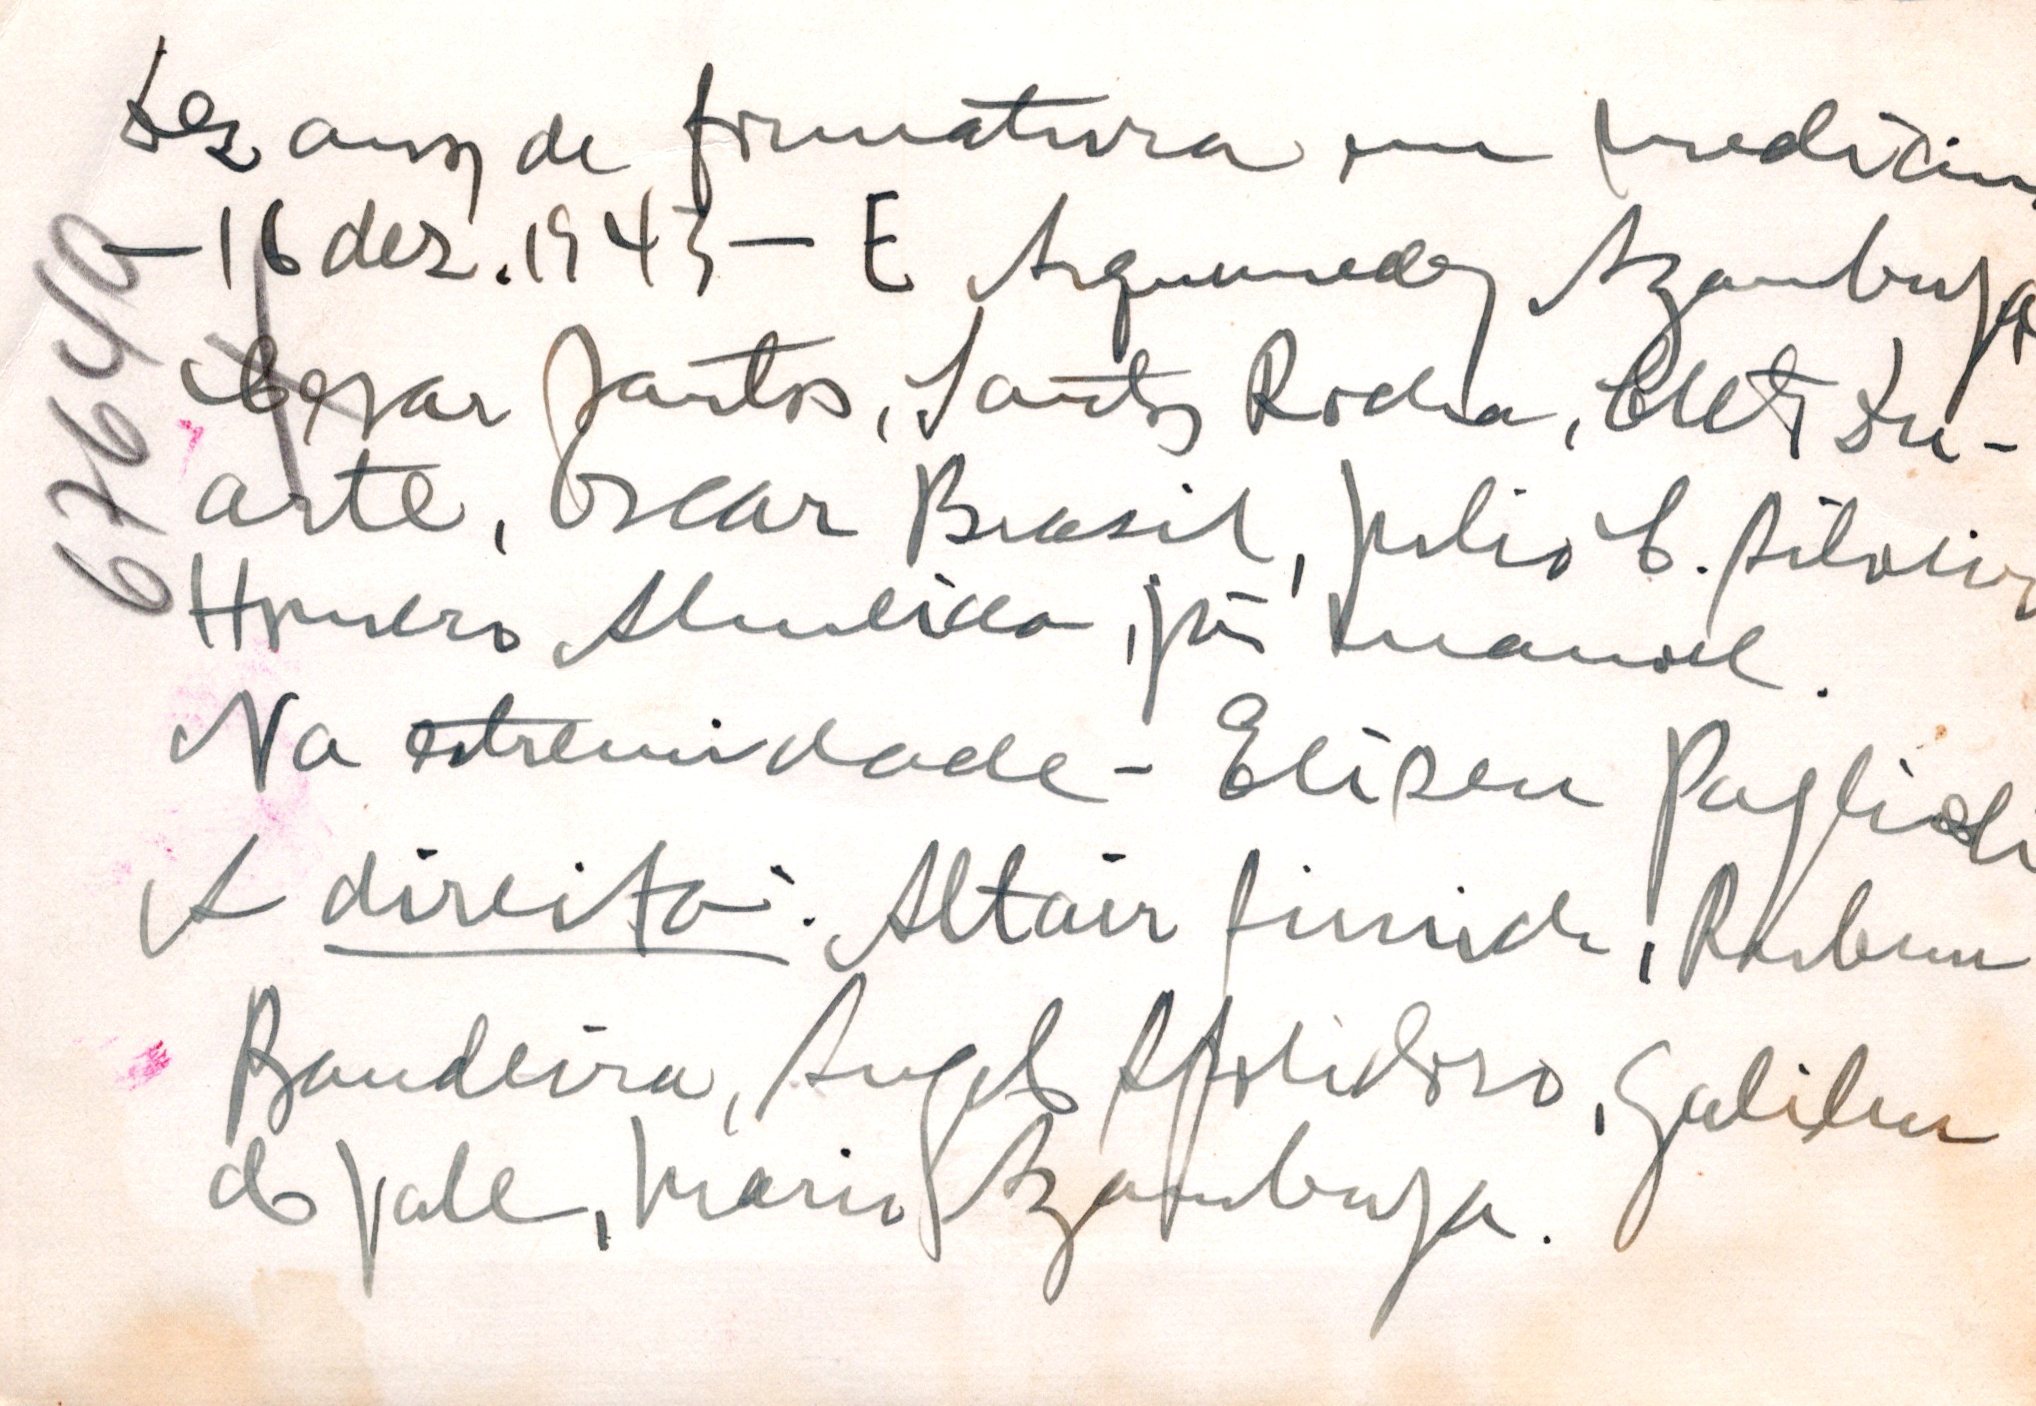 Dez anos de formatura em medicina
— 16 dez. 1943 — E Arquimedes Azambuja
Cezar Santos, Santos Rocha, Du-
arte, Oscar Brasil, Julio C.
Homero Almeida, José Manoel.
Na extremidade - Eliseu Paglioli
A direita: Altair, Rubem
Bandeira, Angelo Apolidoro, Galileu
do Vale, Mario Azambuja.